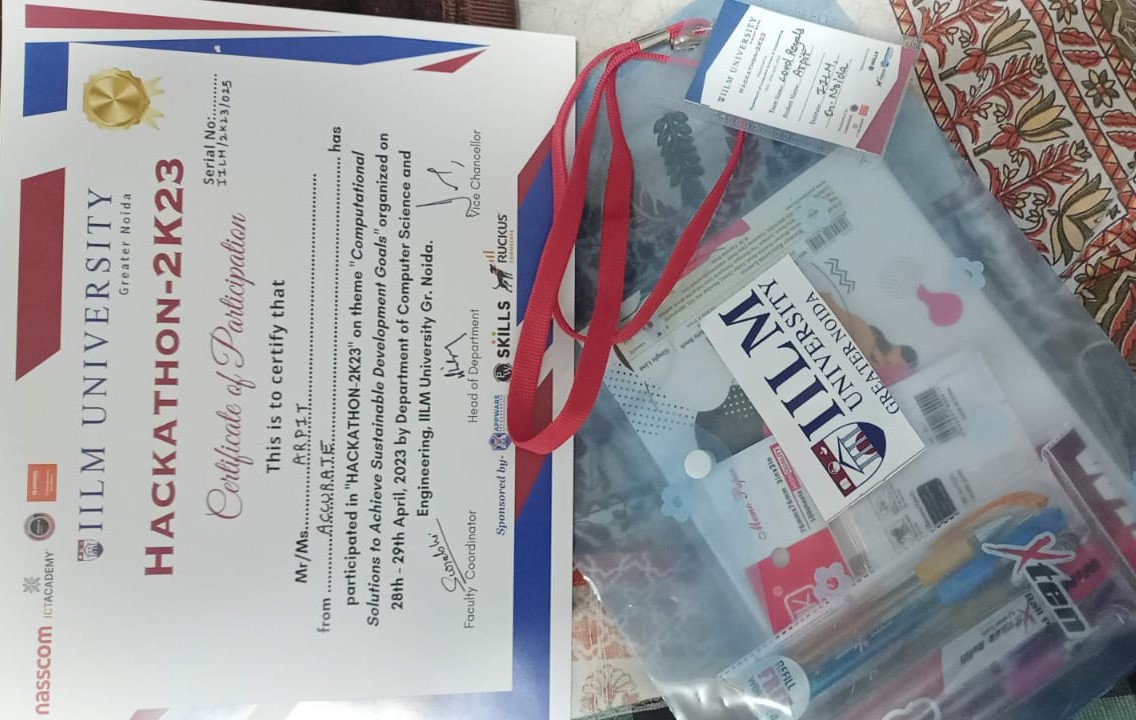 nasscom
ICTACADEMY
IILM UNIVERSITY
Greater Noida
HACKATHON-2K23
Certificate of Participation
Serial No:..........
IILM/2K23/025
This is to certify that
Mr/Ms.............ARPIT..............................
from ............ACCURATE............................ has
participated in "HACKATHON-2K23" on theme "Computational
Solutions to Achieve Sustainable Development Goals" organized on
28th - 29th April, 2023 by Department of Computer Science and
Engineering, IILM University Gr. Noida.
Surabhi
Faculty Coordinator
Head of Department
Vice Chancellor
Sponsored by-
APPWARS
SKILLS
RUCKUS
IILM UNIVERSITY
HACKATHON-2K23
Team Name: Lord Royals
Student Name: Arpit
Institute: IILM
Gr. Noida
IILM
UNIVERSITY
GREATER NOIDA
Single Line
76mmx76mm 3inx3in
100sheets
Xten
REFILL